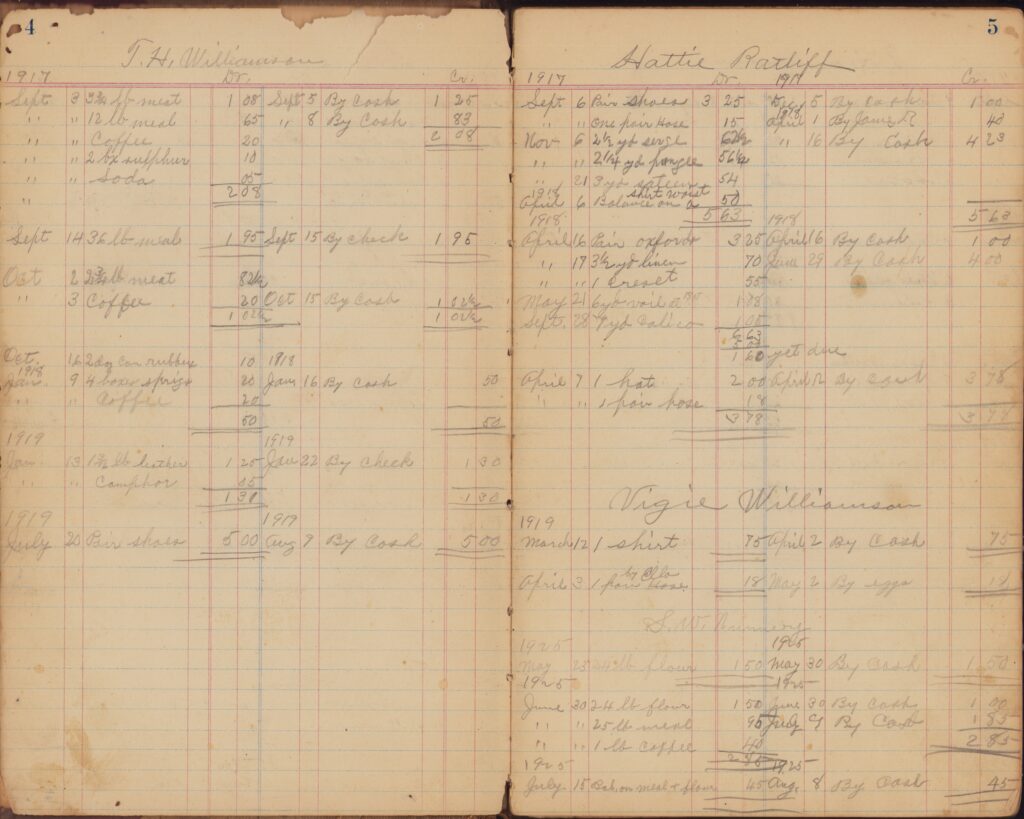 4
T. H. Williamson
1917 Dr. Cr.
Sept 3 3¾ lb meat 1 08 Sept 5 By Cash 1 25
" " 12 lb meal 65 " 8 By Cash 83
" " Coffee 20 2 08
" " 2 oz sulphur 10
" " Soda 05
" 2 08
Sept 14 36 lb meal 1 95 Sept 15 By check 1 95
Oct 2 2¾ lb meat 82½
" 3 Coffee 20 Oct 15 By Cash 1 02½
1 02½ 1 02½
Oct. 16 2 doz Can rubbers 10 1918
1918
Jan. 9 4 boxes 20 Jan 16 By Cash 50
" " Coffee 20
50 50
1919 1919
Jan 13 1½ lb leather 1 25 Jan 22 By Check 1 30
" " Camphor 05
1 30 1 30
1919 1919
July 20 Pair shoes 5 00 Aug 9 By Cash 5 00
5
Hattie Ratliff
1917 Dr. 1917 Cr.
Sept 6 Pair shoes 3 25 Dec 5 By Cash 1 00
1918
" " One pair Hose 15 April 1 By 40
Nov 6 2½ yd serge 62½ " 16 By Cash 4 23
" " 2¼ yd pongee 56½
" 21 3 yd sateen 54
1918 shirt waist
April 6 Balance on a 50
5 63 5 63
1918 1918
April 16 Pair oxfords 3 25 April 16 By Cash 1 00
" 17 3½ yd linen 70 June 29 By Cash 4 00
" " 1 55
May 21 6 yd
Sept. 28 7 yd Calico 1 05
6 63
1 60 yet due
April 7 1 hat 2 00 April 12 By Cash 3 78
" " 1 pair hose 18
3 78 3 78
Vigie Williamson
1919
March 12 1 shirt 75 April 2 By Cash 75
by Clla
April 3 1 pair Hose 18 May 2 By eggs 18
S. W.
1925 1925
May 23 24 lb flour 1 50 May 30 By Cash 1 50
1925 1925
June 30 24 lb flour 1 50 June 30 By Cash 1 00
" " 25 lb meal 95 July 9 By Cash 1 85
" " 1 lb coffee 40 2 85
2 85
1925 1925
July 15 Bal. on meal & flour 45 Aug. 8 By Cash 45